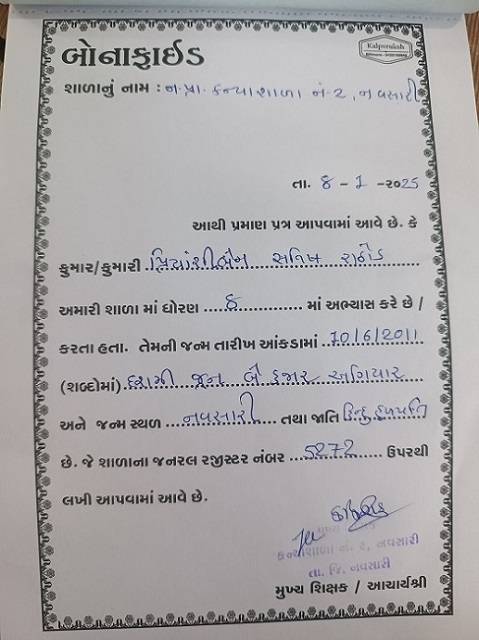 બોનાફાઈડ
Kalpvruksh
શાળાનું નામ : ન.પ્રા. કન્યાશાળા નં-2, નવસારી
તા. 8 - 1 -૨૦25
આથી પ્રમાણ પત્ર આપવામાં આવે છે. કે
કુમાર/કુમારી પ્રિયાંશીબેન સતિષ રાઠોડ
અમારી શાળા માં ધોરણ ...8... માં અભ્યાસ કરે છે /
કરતા હતા. તેમની જન્મ તારીખ આંકડામાં ..10/6/2011
(શબ્દોમાં) દશમી જૂન બે હજાર અગિયાર
અને જન્મ સ્થળ ...નવસારી... તથા જાતિ હિન્દુ હળપતિ
છે. જે શાળાના જનરલ રજીસ્ટર નંબર ...5272... ઉપરથી
લખી આપવામાં આવે છે.
મુખ્ય
કન્યાશાળા નં. ૨, નવસારી
તા. જિ. નવસારી
મુખ્ય શિક્ષક / આચાર્યશ્રી